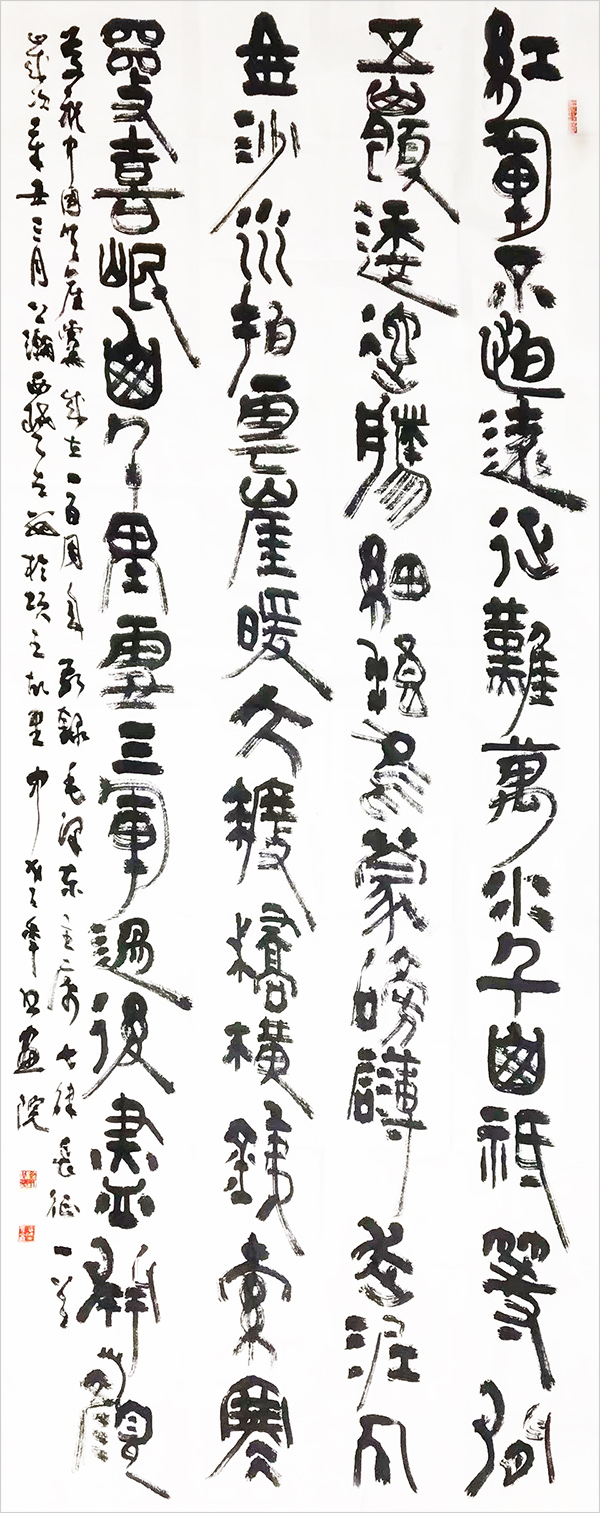 紅軍不怕遠征難萬水千山祗等閒
五嶺逶迤騰細浪烏蒙磅礴走泥丸
金沙水拍雲崖暖大渡橋橫鐵索寒
更喜岷山千里雪三軍過後盡開顏
慶祝中國共產黨成立一百周年敬錄毛澤東主席七律長征一首
歲次辛丑三月於項王故里書畫院